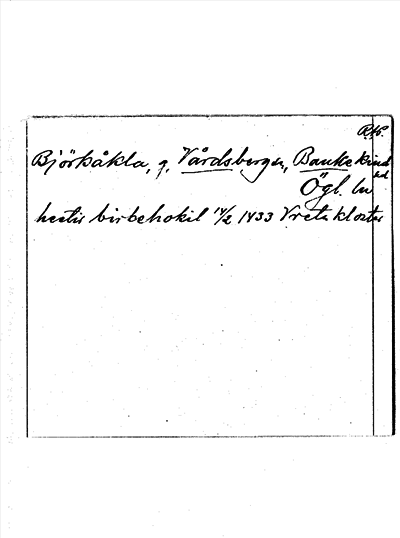 RAP.
Björkåkla, g. Vårdsberga, Bankekind
Ögl. ln
hertis birkehokil 14/2 1433 Vreta kloster